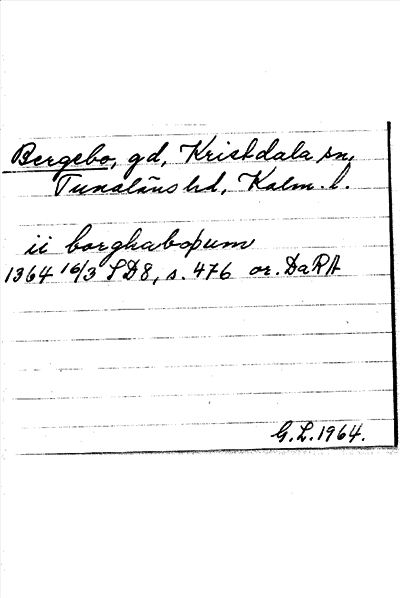 Bergebo, gd, Kristdala sn,
Tunaläns hd, Kalm. l.
ii borghaboþum
1364 16/3 SD8, s. 476 or. DaRA
G.L. 1964.